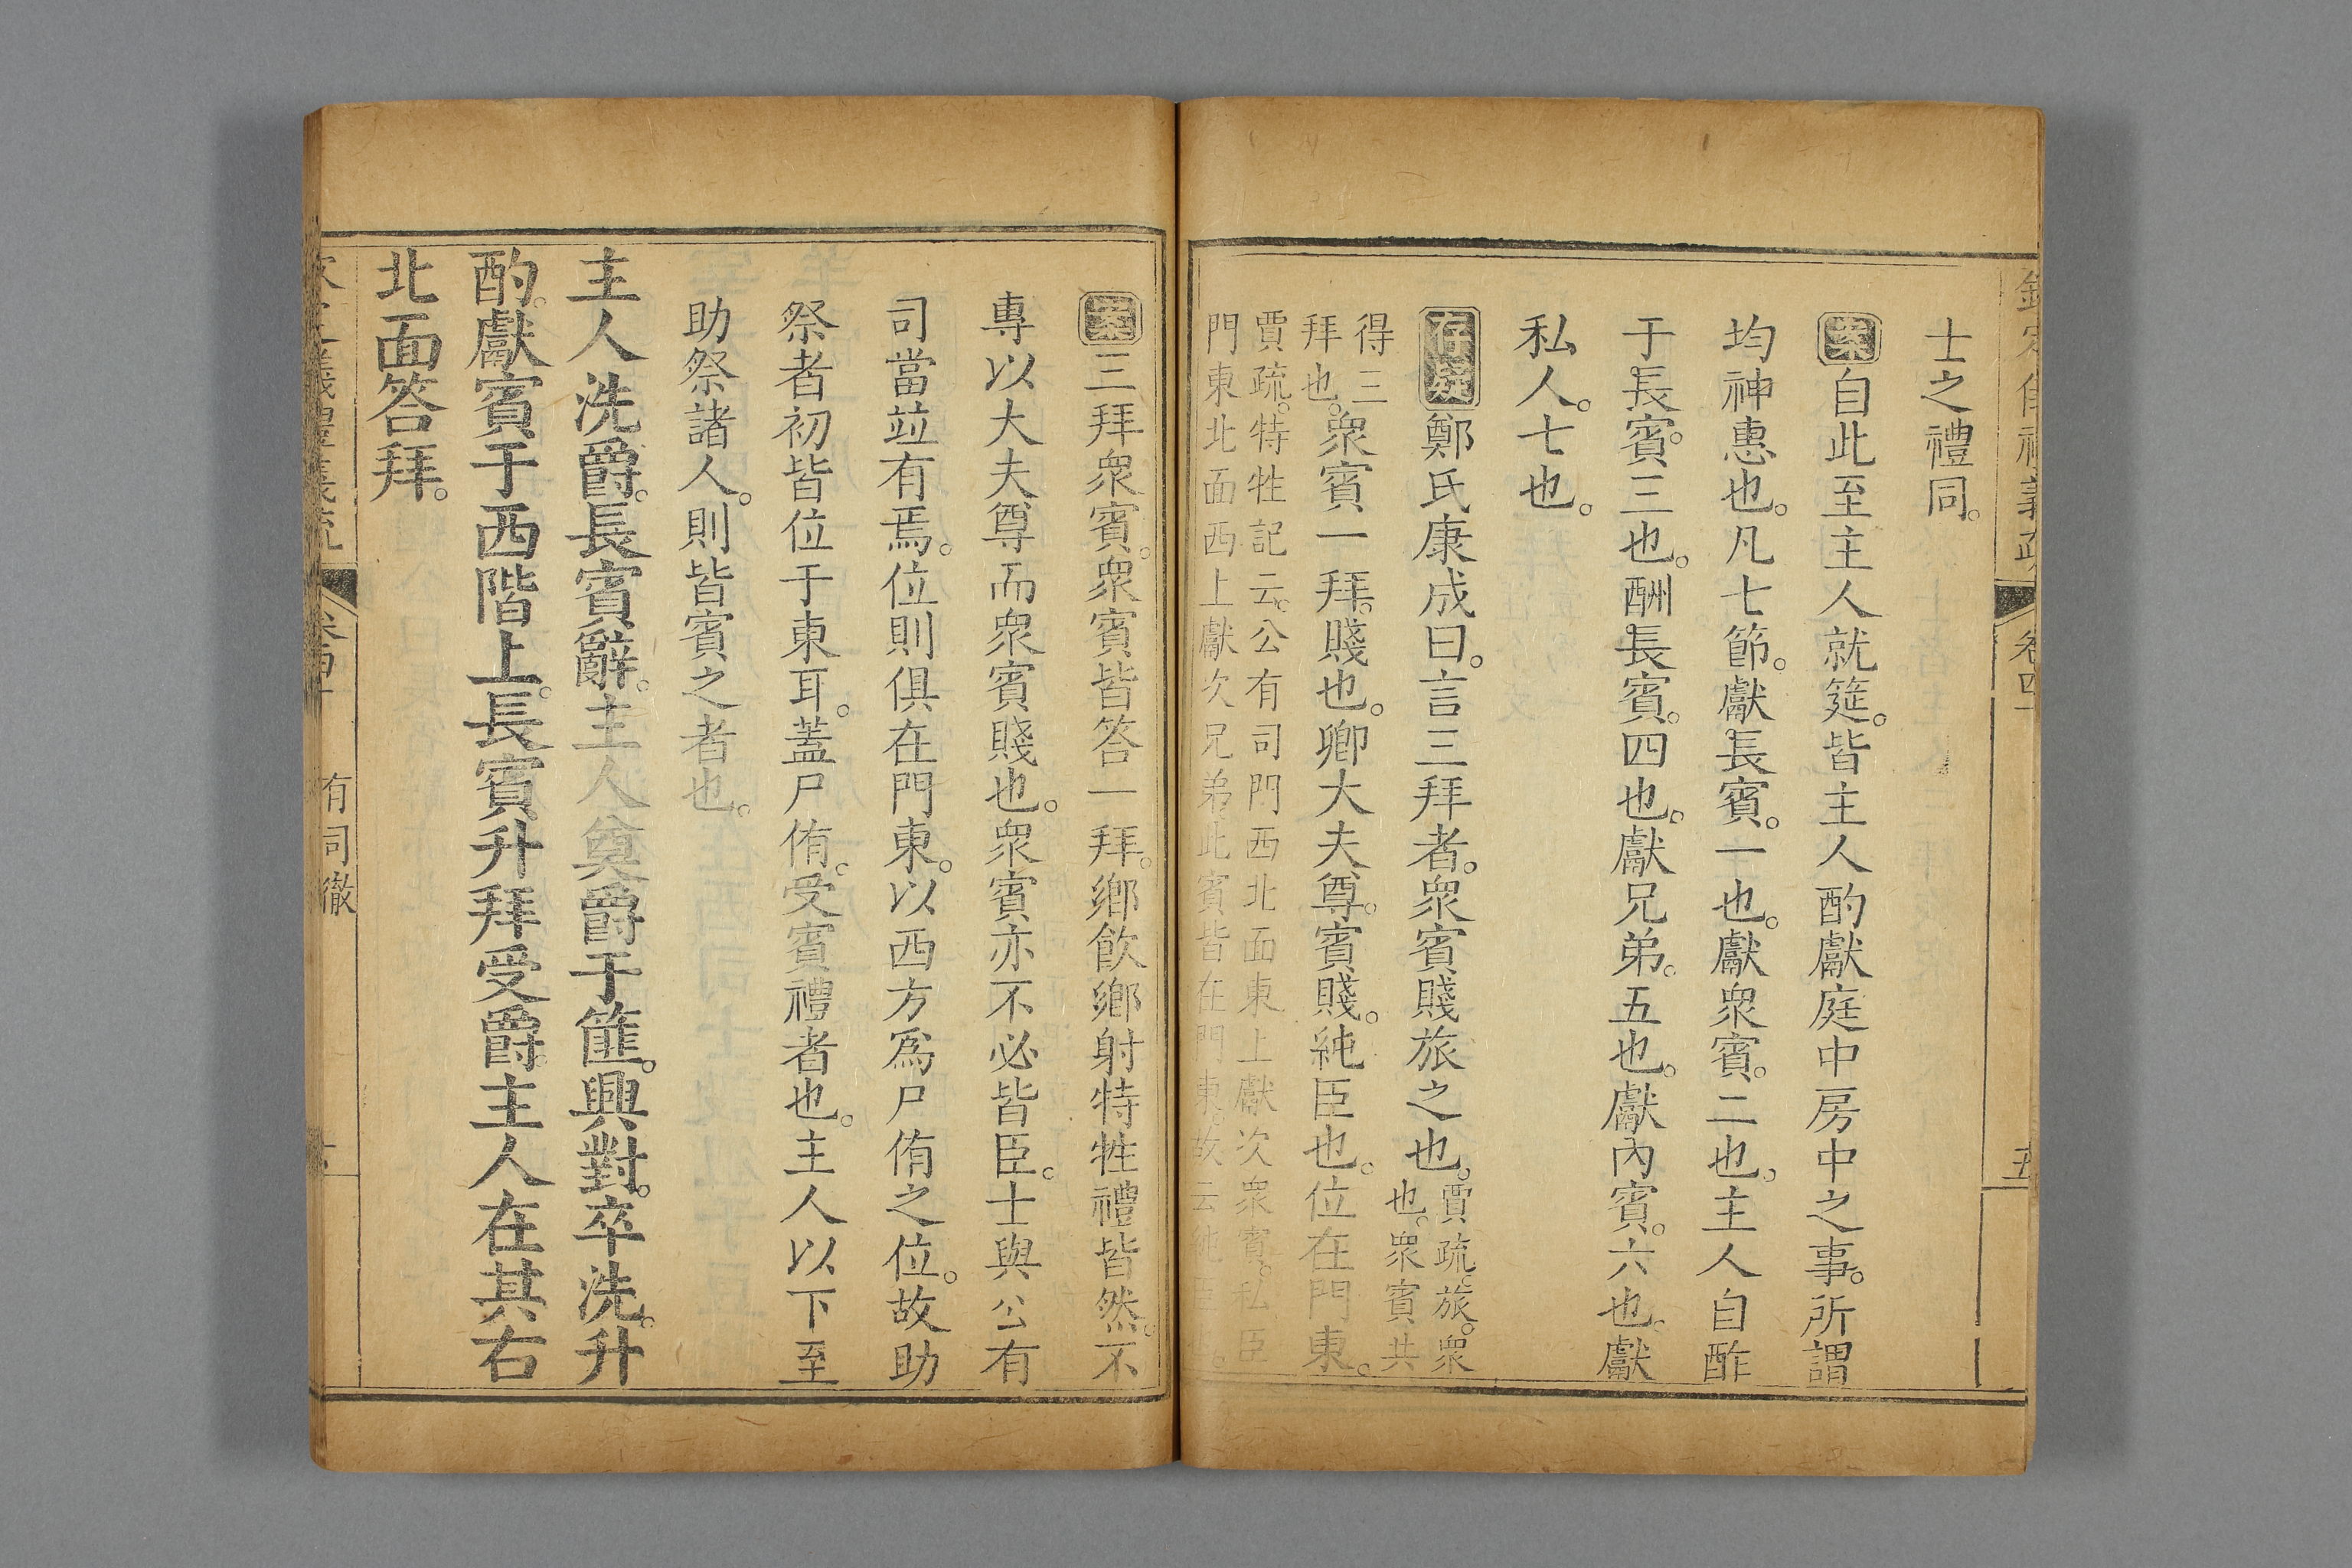 士之禮同。
案自此至主人就筵。皆主人酌獻庭中房中之事。所謂
均神惠也。凡七節。獻長賓。一也。獻衆賓。二也。主人自酢
于長賓。三也。酬長賓。四也。獻兄弟。五也。獻內賓。六也。獻
私人。七也。
存疑鄭氏康成曰。言三拜者。衆賓賤旅之也。賈疏。旅。衆
也。衆賓共
得三
拜也。衆賓一拜。賤也。卿大夫尊。賓賤。純臣也。位在門東。
賈疏。特牲記云。公有司門西北面東上獻次衆賓。私臣
門東北面西上獻次兄弟此賓皆在門東。故云
卷四
五
案三拜衆賓。衆賓皆答一拜。鄉飲鄉射特牲禮皆然。不
專以大夫尊而衆賓賤也。衆賓亦不必皆臣。士與公有
司當竝有焉。位則俱在門東。以西方爲尸侑之位。故助
祭者初皆位于東耳。蓋尸侑。受賓禮者也。主人以下至
助祭諸人。則皆賓之者也。
主人洗爵。長賓辭。主人奠爵于篚。興對。卒洗。升
酌。獻賓于西階上。長賓升拜受爵。主人在其右
北面答拜。
有司徹